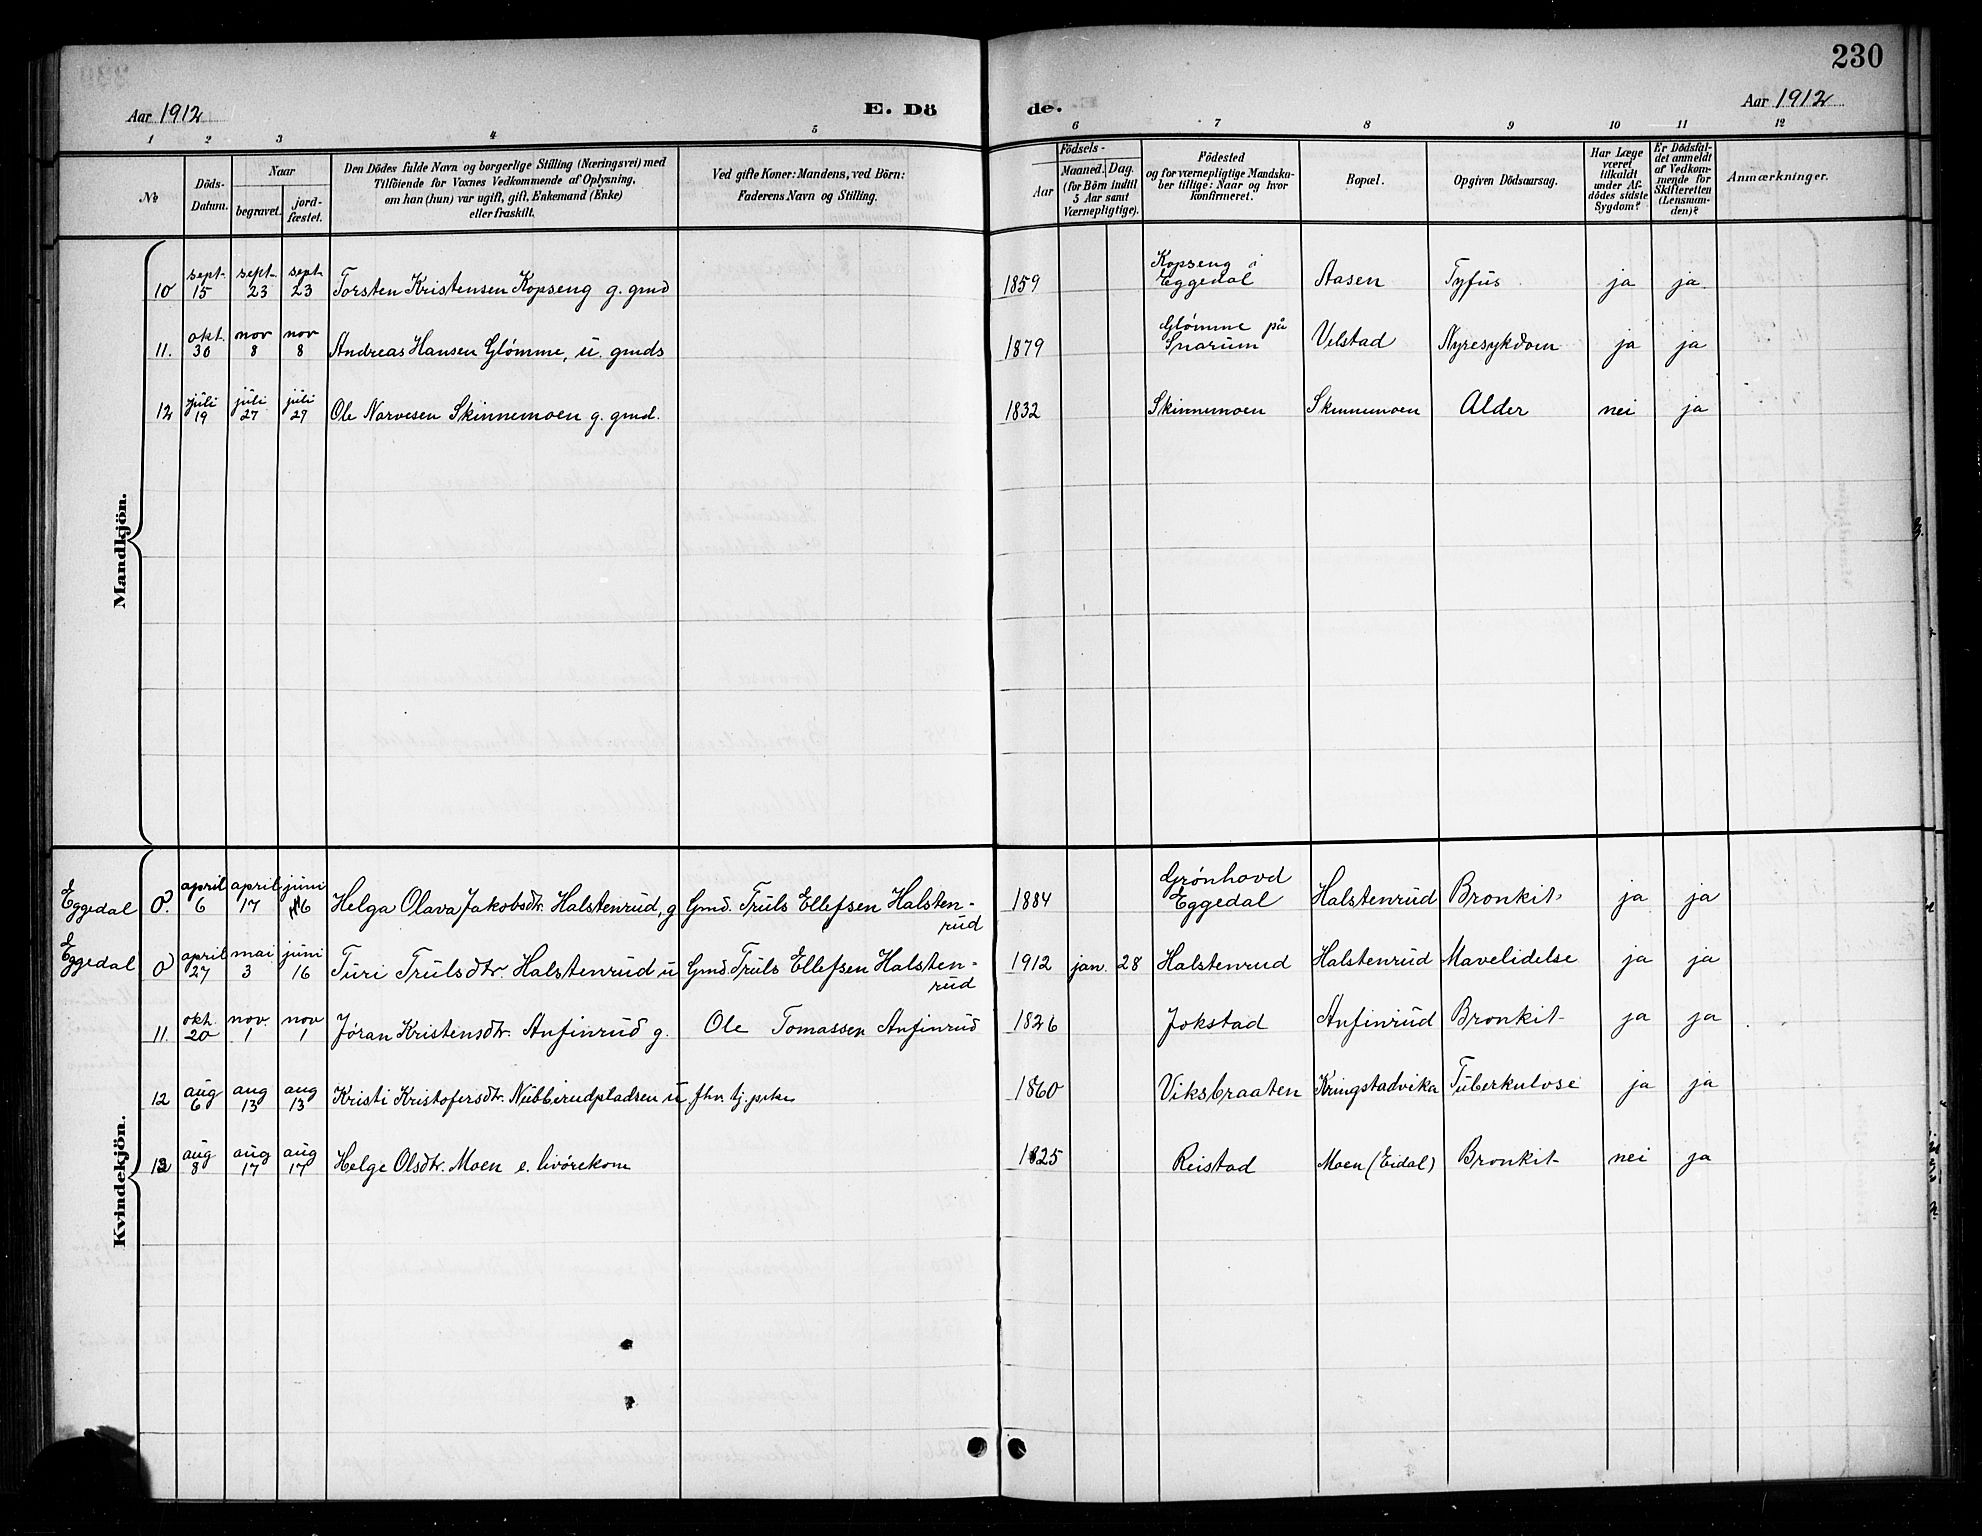 230
Aar 1912
E. Dö
de.
Aar 1912
1 2 3 4 5 6 7 8 9 10 11 12
No
Döds-
Datum.
Naar
begravet.
jord-
fæstet.
Den Dödes fulde Navn og borgerlige Stilling (Næringsvei) med
Tilföiende for Voxnes Vedkommende af Oplysning,
om han (hun) var ugift, gift, Enkemand (Enke)
eller fraskilt.
Ved gifte Koner: Mandens, ved Börn:
Faderens Navn og Stilling.
Födsels-
Aar
Maaned.
Dag.
(for Börn indtil
5 Aar samt
Værnepligtige).
Födested
og for værnepligtige Mandska-
ber tillige: Naar og hvor
konfirmeret.
Bopæl.
Opgiven Dödsaarsag.
Har Læge
været
tilkaldt
under Af-
dödes sidste
Sygdom?
Er Dödsfal-
det anmeldt
af Vedkom-
mende for
Skifteretten
(Lensman-
den)?
Anmærkninger.
Mandkjön.
sept. sept. sept. Kopseng i
10 15 23 23 Torsten Kristensen Kopseng g. gmd 1859 Eggedal Aasen Tyfus ja ja
okt. nov nov Glømme på
11. 30 8 8 Andreas Hansen Glømme, u. gmds 1879 Snarum Velstad Nyresykdom ja ja
juli juli juli
12 19 27 27 Ole Narvesen Skinnemoen g. gmd. 1832 Skinnemoen Skinnemoen Alder nei ja
Kvindekjön.
april april juni Grønhovd
Eggedal 0. 6 17 16 Helga Olava Jakobsdtr. Halstenrud, g Gmd. Truls Ellefsen Halsten- 1884 Eggedal Halstenrud Bronkit ja ja
rud
april mai juni
Eggedal 0 27 3 16 Turi Trulsdtr. Halstenrud u Gmd. Truls Ellefsen Halsten- 1912 jan. 28 Halstenrud Halstenrud Mavelidelse ja ja
rud
okt. nov. nov
11. 20 1 1 Jøran Kristensdtr. Anfinrud g. Ole Tomassen Anfinrud 1826 Jokstad Anfinrud Bronkit ja ja
aug aug aug
12 6 13 13 Kristi Kristofersdtr. Nubberudpladsen u, fhv. tj. pike 1860 Viksbraaten Kringstadvika Tuberkulose ja ja
aug aug aug
13 8 17 17 Helge Olsdtr. Moen e. livørekone 1825 Reistad Moen (Eidal) Bronkit nei ja